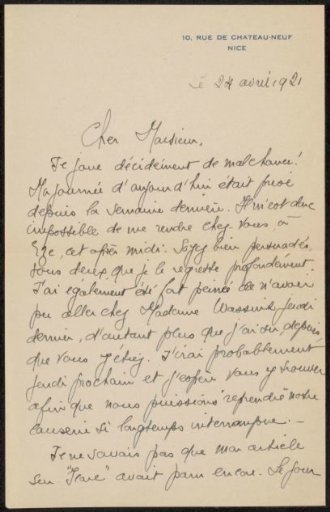 10, RUE DE CHATEAU-NEUF
NICE
le 24 avril 1921
Cher Monsieur,
Je joue décidément de malchance!
Ma journée d'aujourd'hui était prise
depuis la semaine dernière. Il m'est donc
impossible de me rendre chez vous à
Eze, cet après midi. Soyez bien persuadés,
tous deux, que je le regrette profondément.
J'ai également été fort peiné de n'avoir
pu aller chez Madame Jeudi
dernier, d'autant plus que j'ai su, depuis,
que vous y étiez. J'irai probablement
jeudi prochain et j'espère vous y trouver
afin que nous puissions reprendre notre
causerie si longtemps interrompue. —
Je ne savais pas que mon article
sur avait paru encore. Le jour